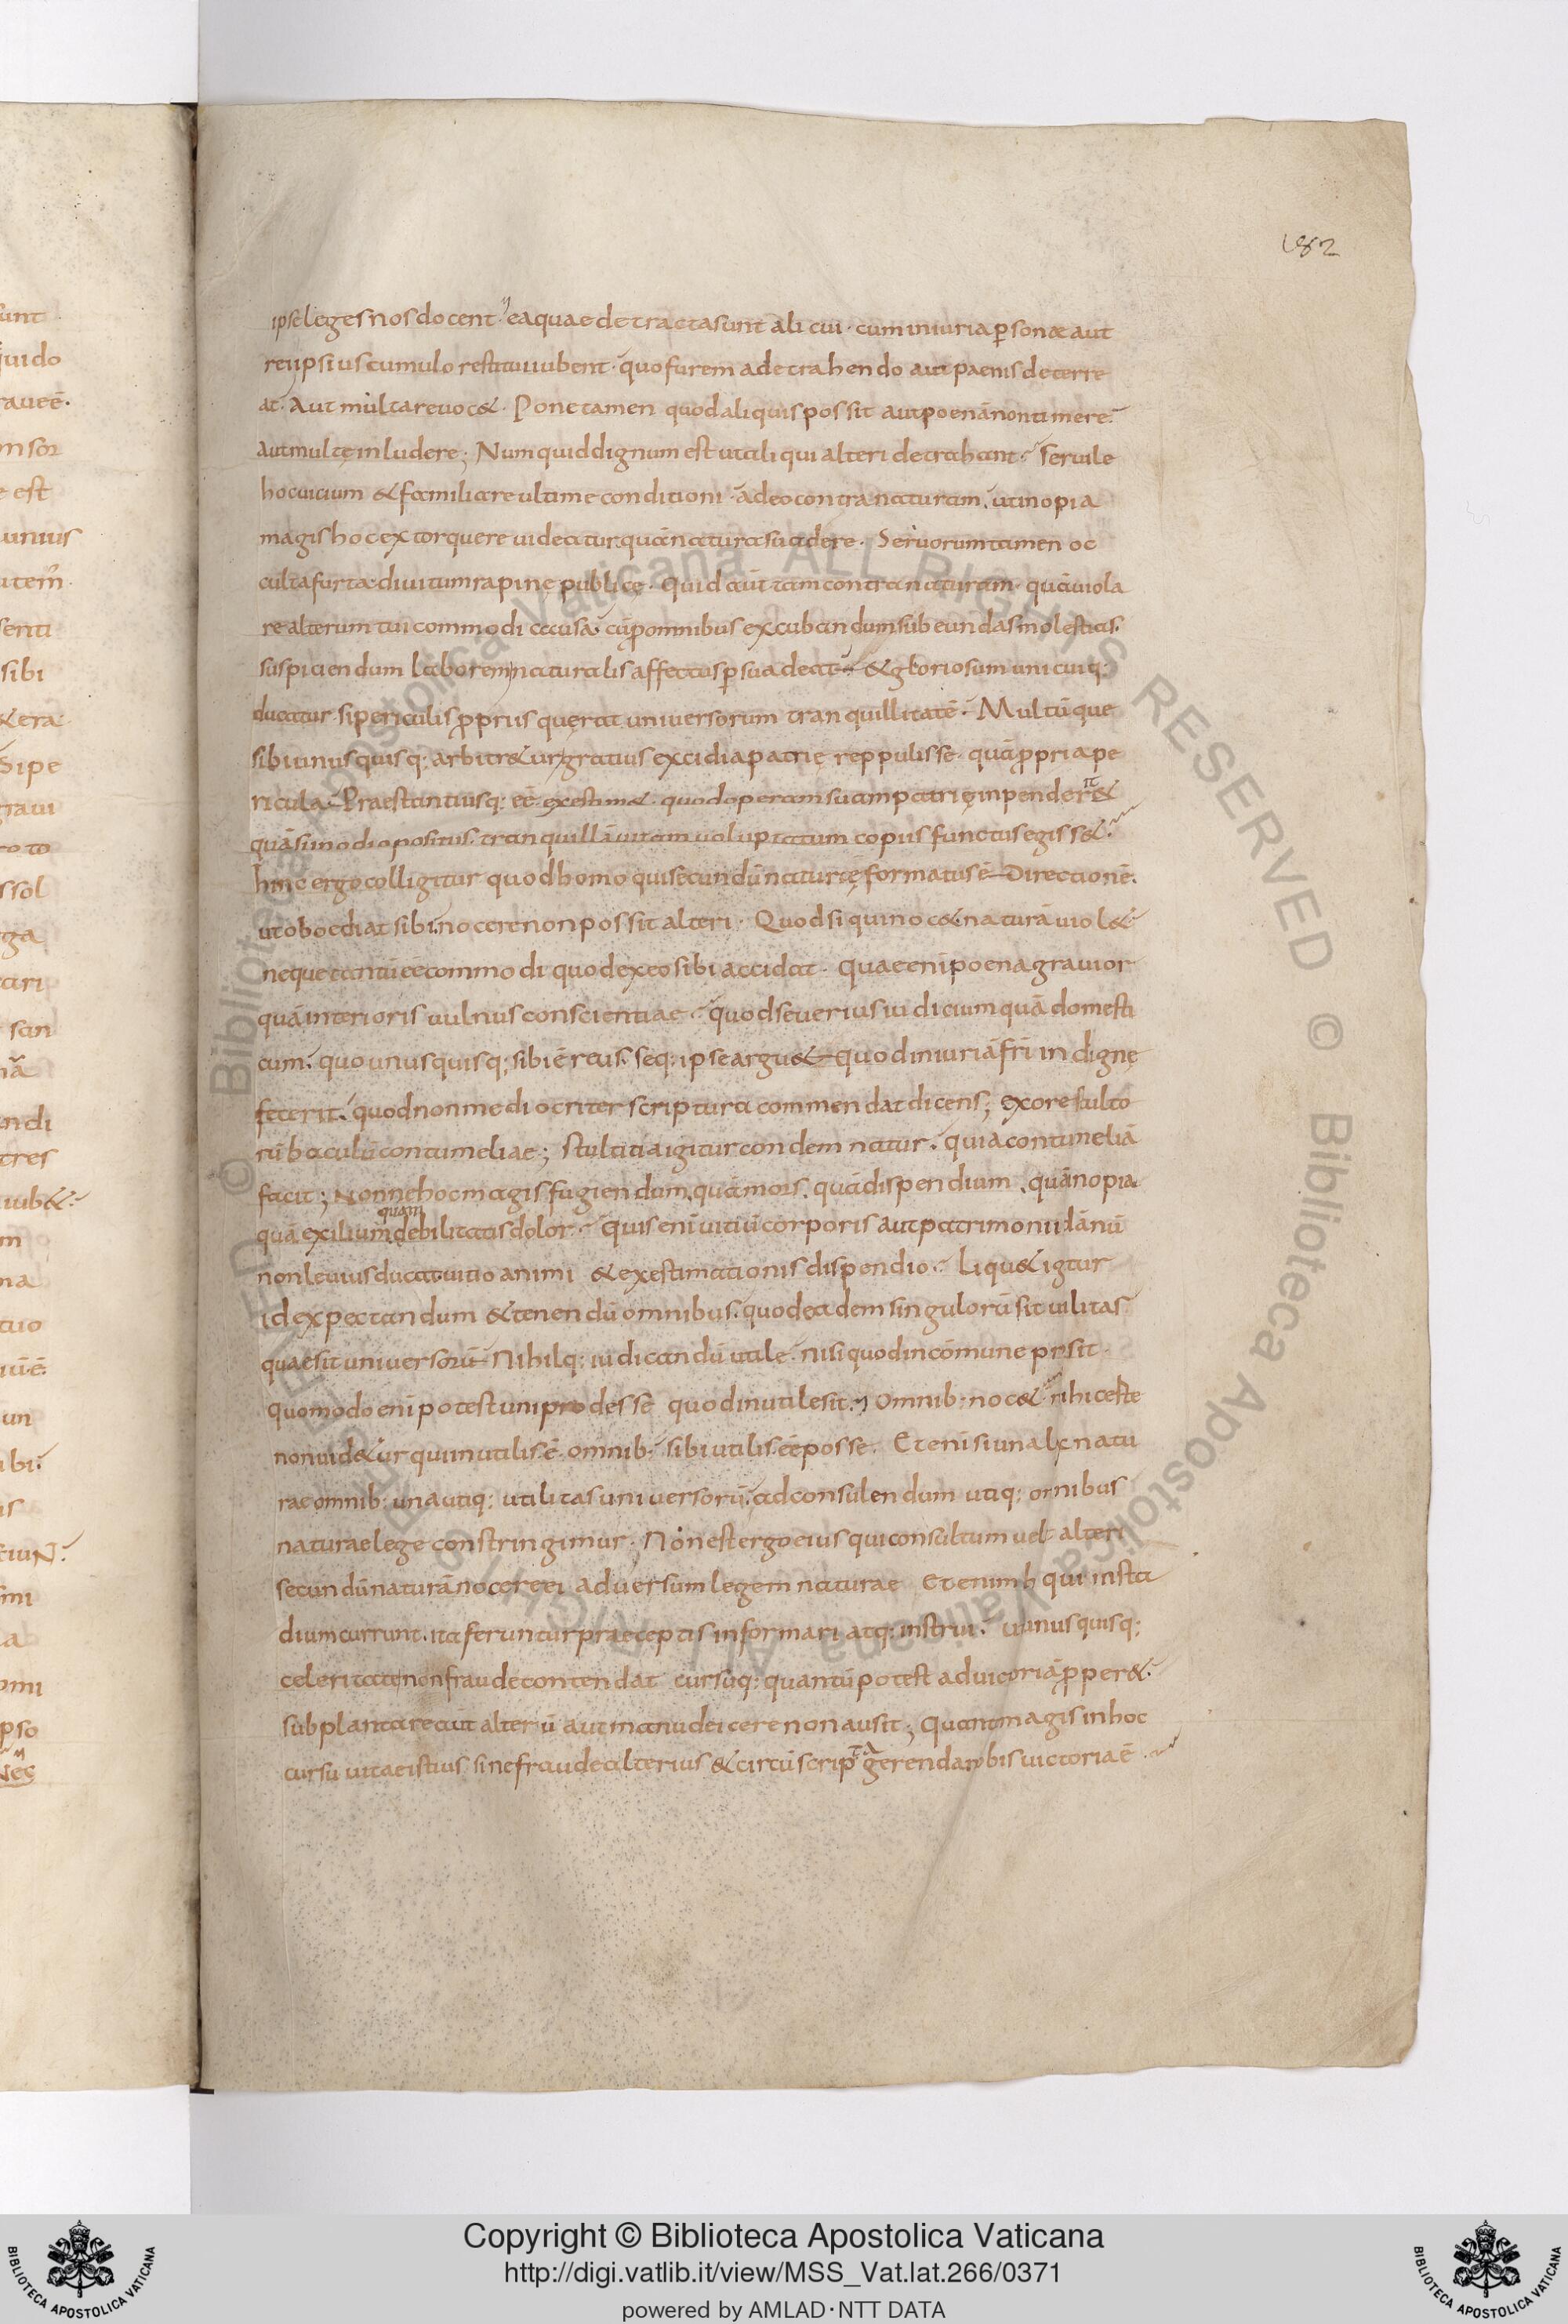 182
ipse leges nos docent · ea quae detracta sunt alicui · cum iniuria p̄sonae aut
rei ipsius cumulo restitui iubent · quo furem a detrahendo aut paenis deterre
at · Aut multa revoc& · Pone tamen quod aliquis possit aut poenā non timere ·
aut multę inludere ; Num quid dignum est ut aliqui alteri detrahant · servile
hoc vicium & familiare ultime conditioni · adeo contra naturam · ut inopia
magis hoc extorquere videatur quā natura suadere · Servorum tamen oc
culta furta · divitum rapinę publicę · Quid aūt tam contra naturam · quā viola
re alterum tui commodi causa · cū p omnibus excubandum subeundas molestias ·
suspiciendum laborem naturalis affectus p̄suadeat · & gloriosum unicuiq;
ducatur · si periculis p̄priis quęrat universorum tranquillitatē · Multūque
sibi unusquisq; arbitr&ur gratius excidia patrię reppulisse · quā p̄pria pe
ricula · Praestantiusq; eē existim& · quod operam suam patrię inpender&
quā si in odio positus · tranquillā vitam voluptatum copiis functus egiss& ·
hinc ergo colligitur quod homo qui secundū naturę formatus ē directionē ·
ut oboediat sibi · nocere non possit alteri · Quod si qui noc& · naturā viol& ·
neque tanti eē commodi quod ex eo sibi accidat · Quae eni poena gravior
quā interioris vulnus conscientiae · quod severius iudicium quā domesti
cum · quo unusquisq; sibi ē reus · seq; ipse argu& quod iniuriā frī indignę
fecerit · quod non mediocriter scriptura commendat dicens ; ex ore stulto
rū baculū contumeliae ; stultitia igitur condemnatur · quia contumeliā
facit ; Nonne hoc magis fugiendum quā mors · quā dispendium · quā inopia
quā exilium quam debilitatis dolor · Quis enī vitiū corporis aut patrimonii dānū
non levius ducat vitio animi & existimationis dispendio · Liqu& igitur
id expectandum & tenendū omnibus · quod eadem singulorū sit utilitas
quae sit universorū · Nihilq; iudicandū utile · nisi quod in cōmune prosit ·
quomodo eni potest uni prodesse quod inutile sit · Omnib; noc& · mihi certe
non vid&ur qui inutilis ē omnib; · sibi utilis eē posse · Et eni si una lex natu
rae omnib; una utiq; utilitas universorū · ad consulendum utiq; omnibus
naturae lege constringimur · Non est ergo eius qui consultum velit alteri
secundū naturā nocere ei adversum legem naturae Et enim h qui in sta
dium currunt · ita feruntur praeceptis informari atq; instrui · ut unusquisq;
celeritate non fraude contendat cursuq; quantū potest ad victoriā p̄pper& ·
subplantare aut alterū aut manu deicere non ausit ; Quanto magis in hoc
cursu vitae istius sine fraude alterius & circūscriptā gerenda nobis victoria ē
Copyright © Biblioteca Apostolica Vaticana
http://digi.vatlib.it/view/MSS_Vat.lat.266/0371
powered by AMLAD·NTT DATA